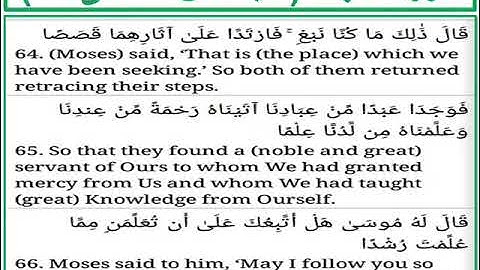 قَالَ ذَٰلِكَ مَا كُنَّا نَبْغِ ۚ فَارْتَدَّا عَلَىٰ آثَارِهِمَا قَصَصًا
64. (Moses) said, ‘That is (the place) which we
have been seeking.’ So both of them returned
retracing their steps.
فَوَجَدَا عَبْدًا مِّنْ عِبَادِنَا آتَيْنَاهُ رَحْمَةً مِّنْ عِندِنَا
وَعَلَّمْنَاهُ مِن لَّدُنَّا عِلْمًا
65. So that they found a (noble and great)
servant of Ours to whom We had granted
mercy from Us and whom We had taught
(great) Knowledge from Ourself.
قَالَ لَهُ مُوسَىٰ هَلْ أَتَّبِعُكَ عَلَىٰ أَن تُعَلِّمَنِ مِمَّا
عُلِّمْتَ رُشْدًا
66. Moses said to him, ‘May I follow you so